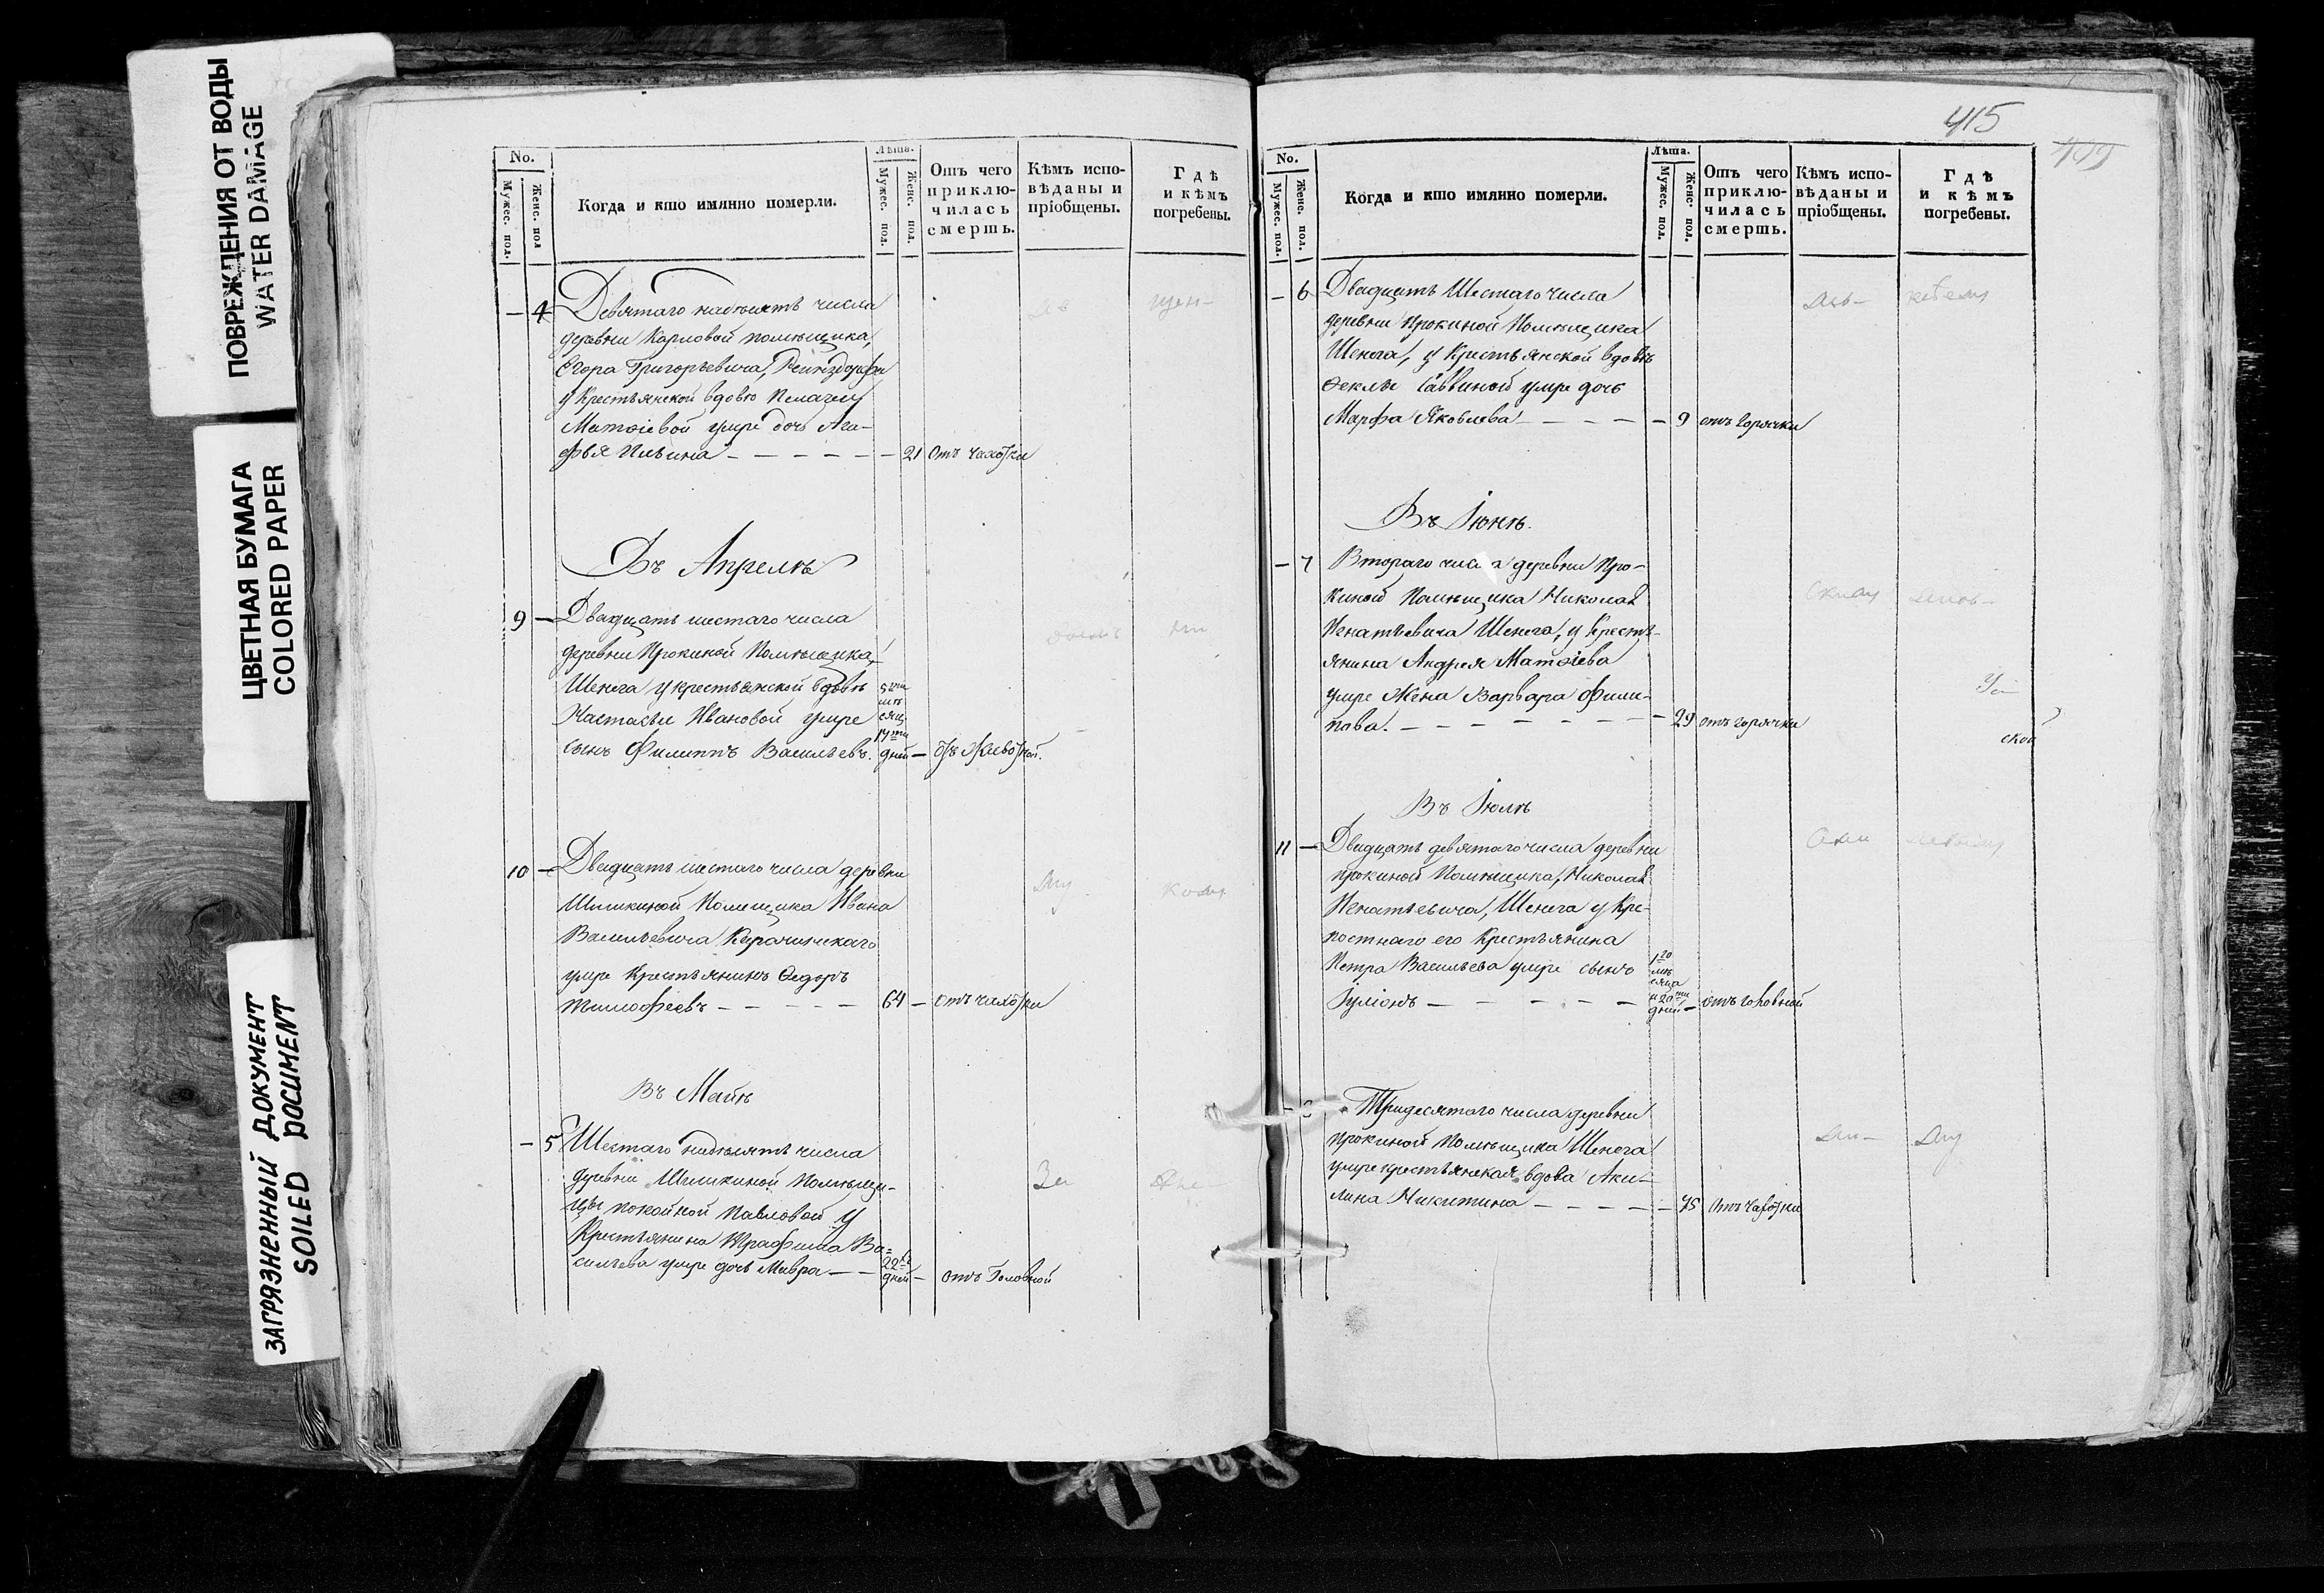 ПОВРЕЖДЕНИЯ ОТ ВОДЫ
WATER DAMAGE
ЦВЕТНАЯ БУМАГА
COLORED PAPER
ЗАГРЯЗНЕННЫЙ ДОКУМЕНТ
SOILED DOCUMENT
No.
Мужес. пол.
Женс. пол
Когда и кто имянно померли.
Лѣта.
Мужес. пол.
Женс. пол.
Отъ чего
приклю-
чилась
смерть.
Кѣмъ испо-
вѣданы и
пріобщены.
Гдѣ
и кѣмъ
погребены.
— 4 Девятаго надесять числа
деревни Карловой помѣщика,
Егора Григорьевича,
у Крестьянской вдовы Пелагеи
Матѳіевой умре дочь Ага-
фья Ильина — — — — — — 21 отъ чахотки
Въ Апрелѣ
9 — Двадцать шестаго числа
деревни Прокиной Помѣщика
Шенега у крестьянской вдовѣ
Настасьи Ивановой умре
сынъ Филиппъ Васильевъ. 5ти мѣсяц 17ти дней —
10 — Двадцать шестаго числа деревни
Шишкиной Помещика Ивана
Васильевича
умре Крестьянинъ Ѳедоръ
Тимофеевъ — — — — — 64 — отъ чахотки
Въ Маіѣ
— 5 Шестаго надесять числа
деревни Шишкиной Помѣщи-
цы покойной Павловой у
Крестьянина Трафима Ва-
сильева умре дочь Мавра — — 22 дней — отъ Головной
415
No.
Мужес. пол.
Женс. пол.
Когда и кто имянно померли.
Лѣта.
Мужес. пол.
Женс. пол.
Отъ чего
приклю-
чилась
смерть.
Кѣмъ испо-
вѣданы и
пріобщены.
Гдѣ
и кѣмъ
погребены.
— 6 Двадцать Шестаго числа
деревни Прокиной Помѣщика
Шенега, у Крестьянской вдовѣ
Ѳеклы Саввиной умре дочь
Марфа Яковлева — — — — — 9 отъ горячки
Въ Іюнѣ.
— 7 Втораго числа деревни Про-
киной Помѣщика Николая
Игнатьевича Шенега, у Кресть-
янина Андрея Матѳіева
умре Жена Варвара Фили-
пова. — — — — — — — 29 отъ горячки
Въ Іюлѣ
11 — Двадцать девятаго числа деревни
прокиной Помѣщика, Николая
Игнатьевича, Шенега у Кре-
постнаго его Крестьянина
Петра Васильева умре сынъ
Іуліанъ — — — — — 1го мѣсяца и 20ти дней — отъ головной
Тридесятаго числа деревни
прокиной Помѣщика Шенега
умре крестьянская вдова Аку-
лина Никитина — — — — — 75 отъ чахотки